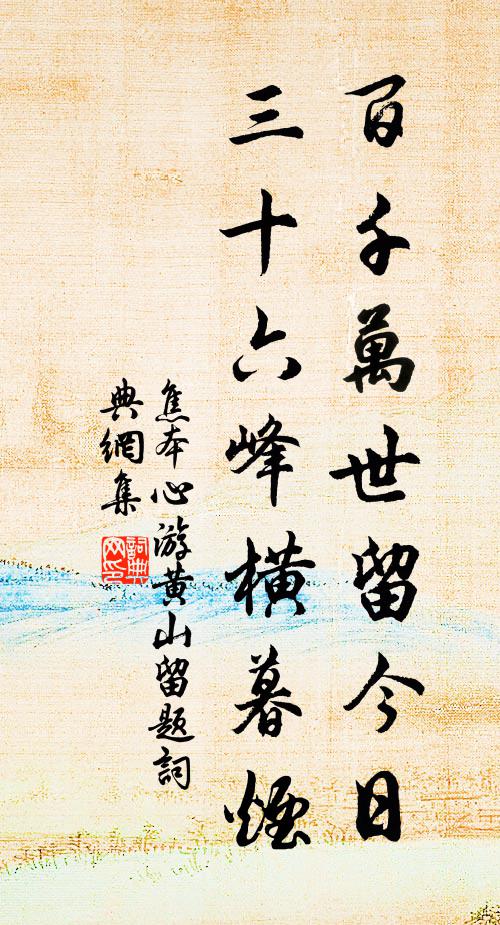 百千萬世留今日
三十六峰橫暮煙
焦本心游黃山留題詞
典網集
詞典
网印